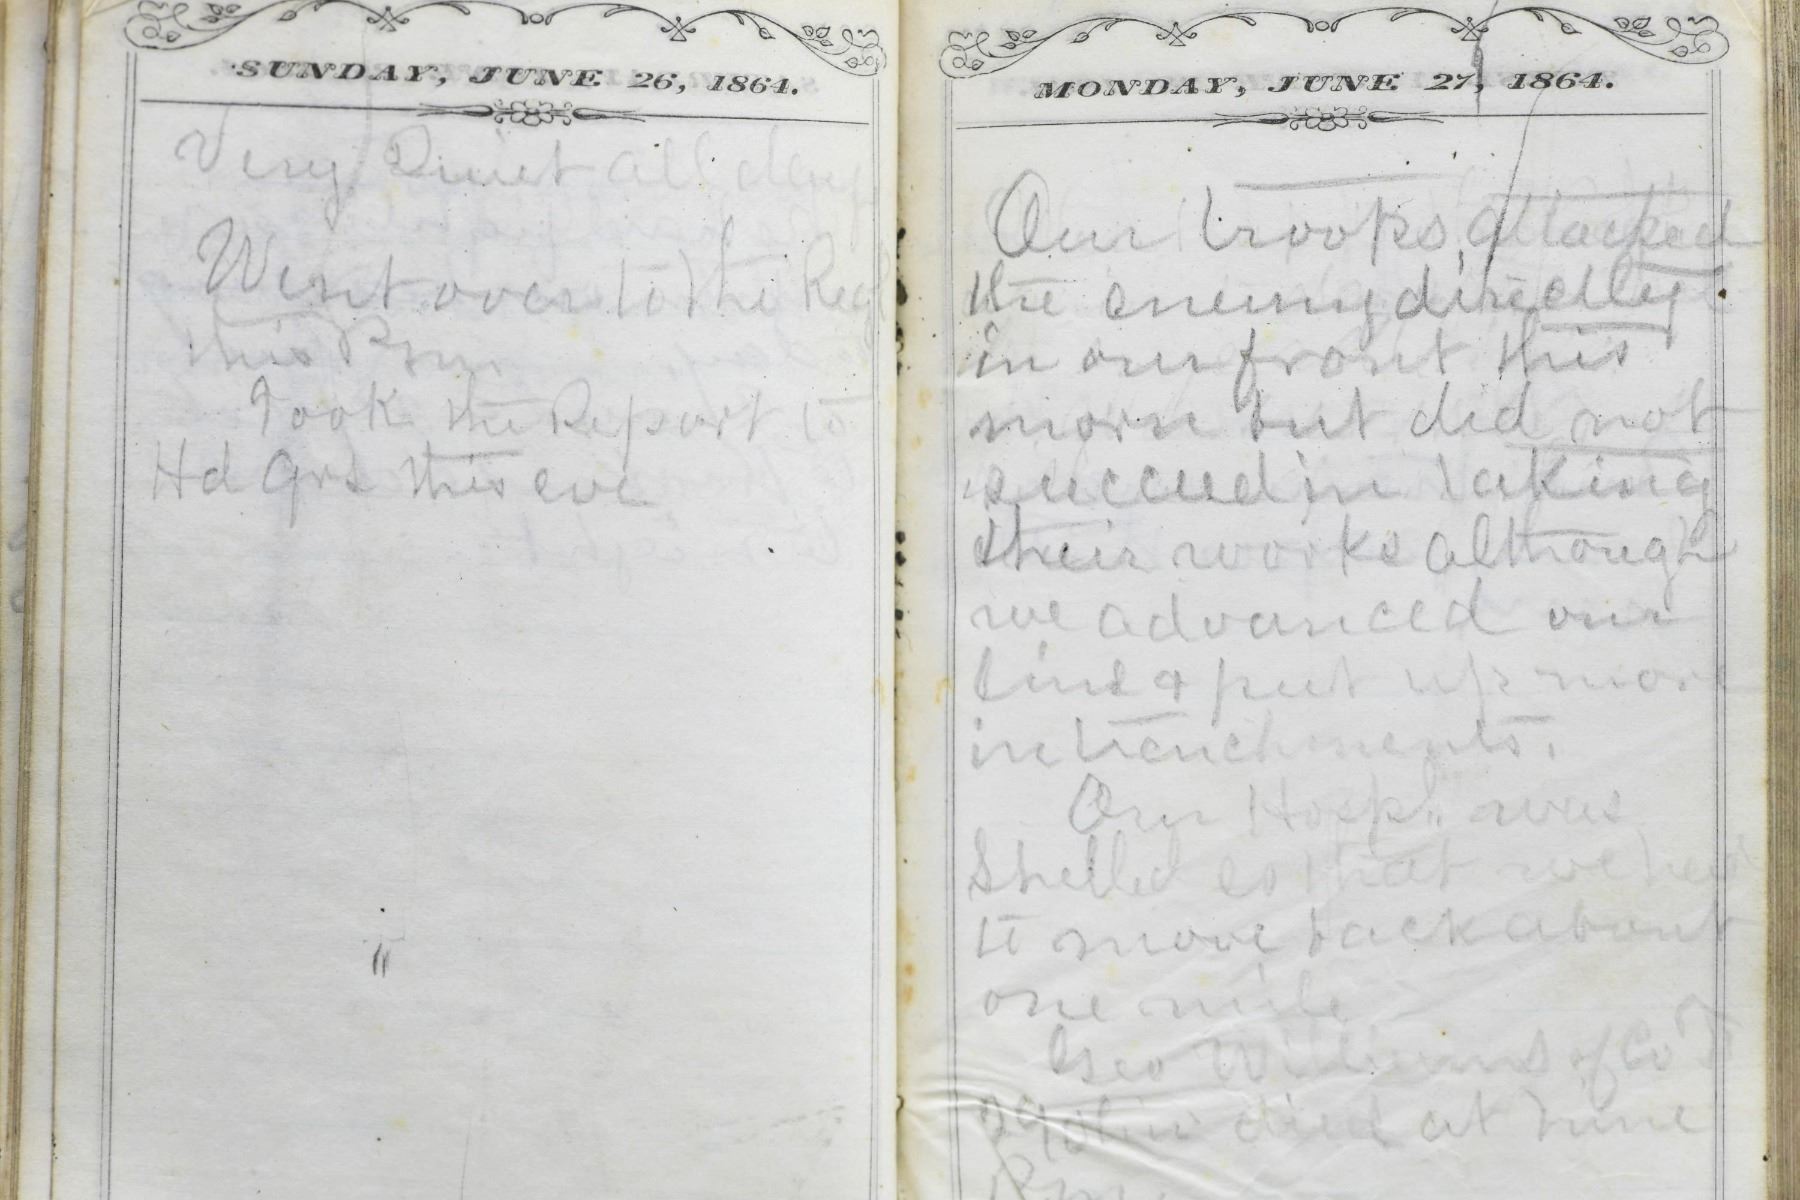 SUNDAY, JUNE 26, 1864.
Very Quiet all day
Went over to the Regt
this P.m.
Took the Report to
Hd Qrs this eve
MONDAY, JUNE 27, 1864.
Our troops attacked
the enemy directly
in our front this
morn but did not
succeed in taking
their works although
we advanced our
line & put up more
intrenchments.
Our Hospl. was
Shelled so that we had
to move back about
one mile
Geo Williams of Co
died at nine
P.m.